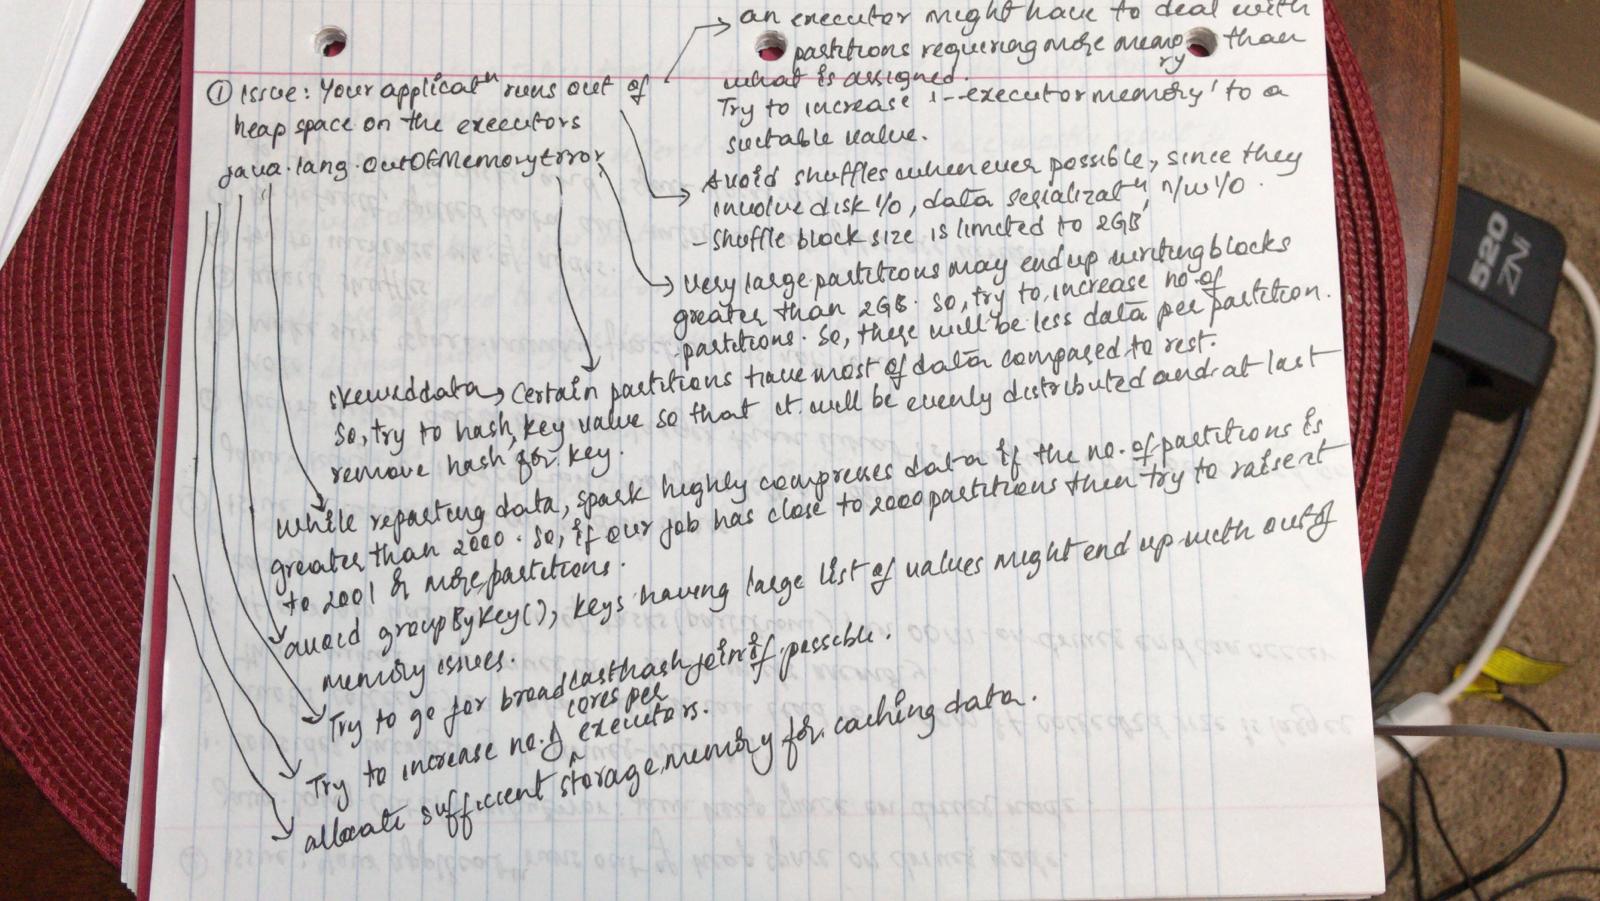 an executor might have to deal with
partitions requiring more memory than
what is assigned.
Try to increase '--executor memory' to a
suitable value.
① Issue: Your applicatⁿ runs out of
heap space on the executors
java.lang.OutOfMemoryError
Avoid shuffles whenever possible, since they
involve disk I/O, data serializatⁿ, n/w I/O.
- Shuffle block size is limited to 2GB
Very large partitions may end up writing blocks
greater than 2GB. So, try to increase no. of
partitions. So, there will be less data per partition.
skewed data → Certain partitions have most of data compared to rest.
So, try to hash key value so that it will be evenly distributed and at last
remove hash for key.
While reporting data, spark highly compresses data if the no. of partitions is
greater than 2000. So, if our job has close to 2000 partitions then try to raise it
to 2001 & more partitions.
avoid groupByKey(), keys having large list of values might end up with out of
memory issues.
Try to go for broadcast hash join if possible.
Try to increase no. of cores per executors.
allocate sufficient storage memory for caching data.
520
ZNi